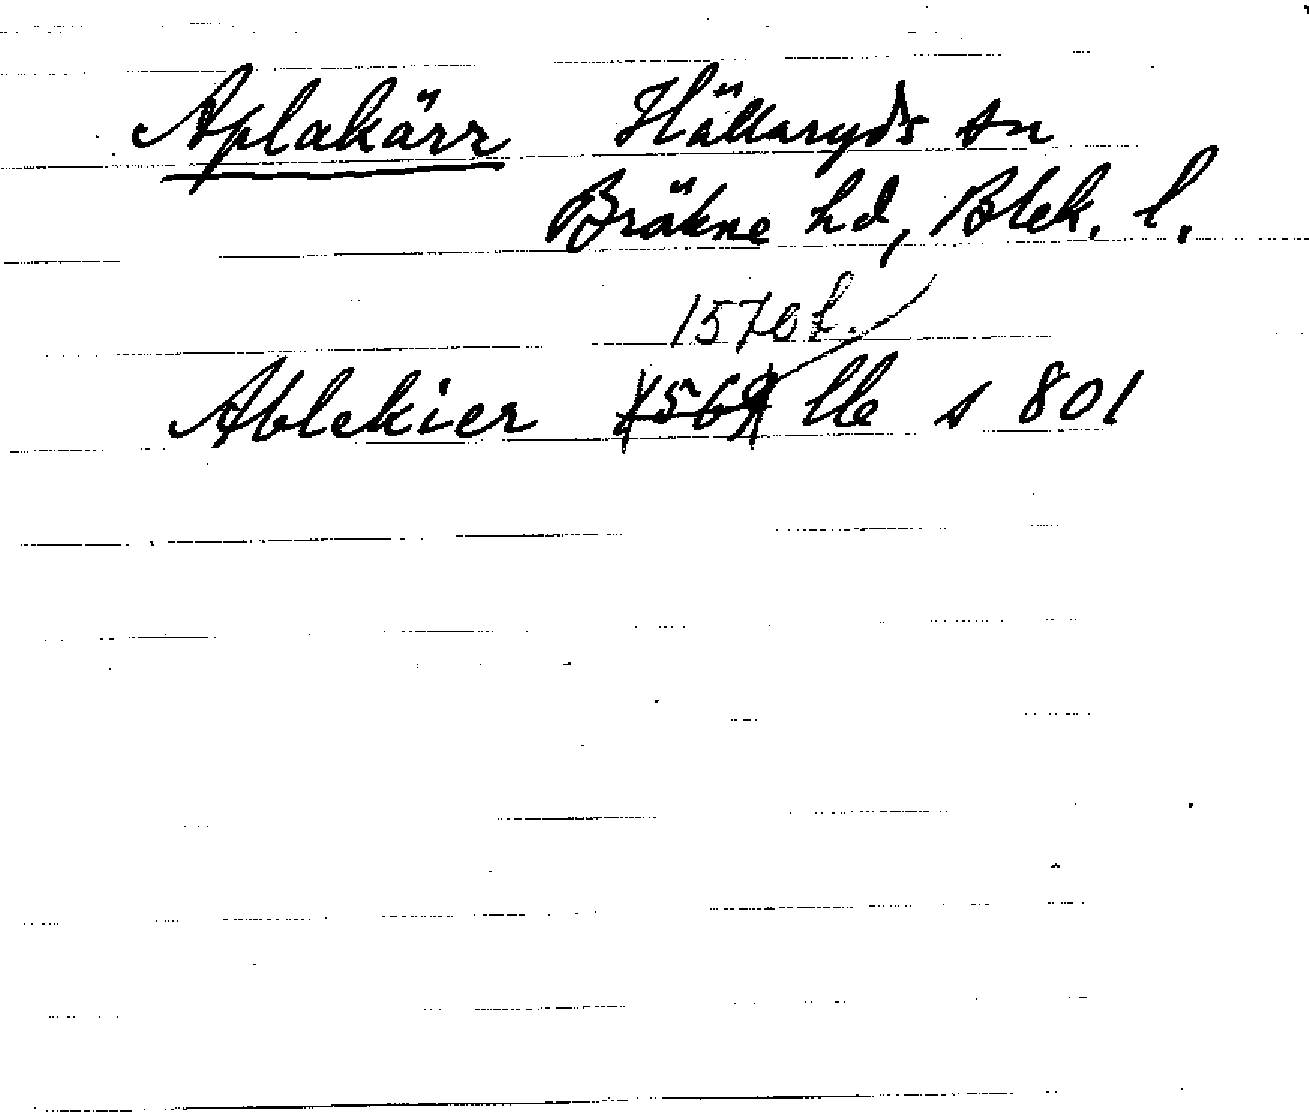 Aplakärr Hällaryds sn
Bräkne hd, Blek. l.
1570 t.
Ablekier 1569 lle s 801